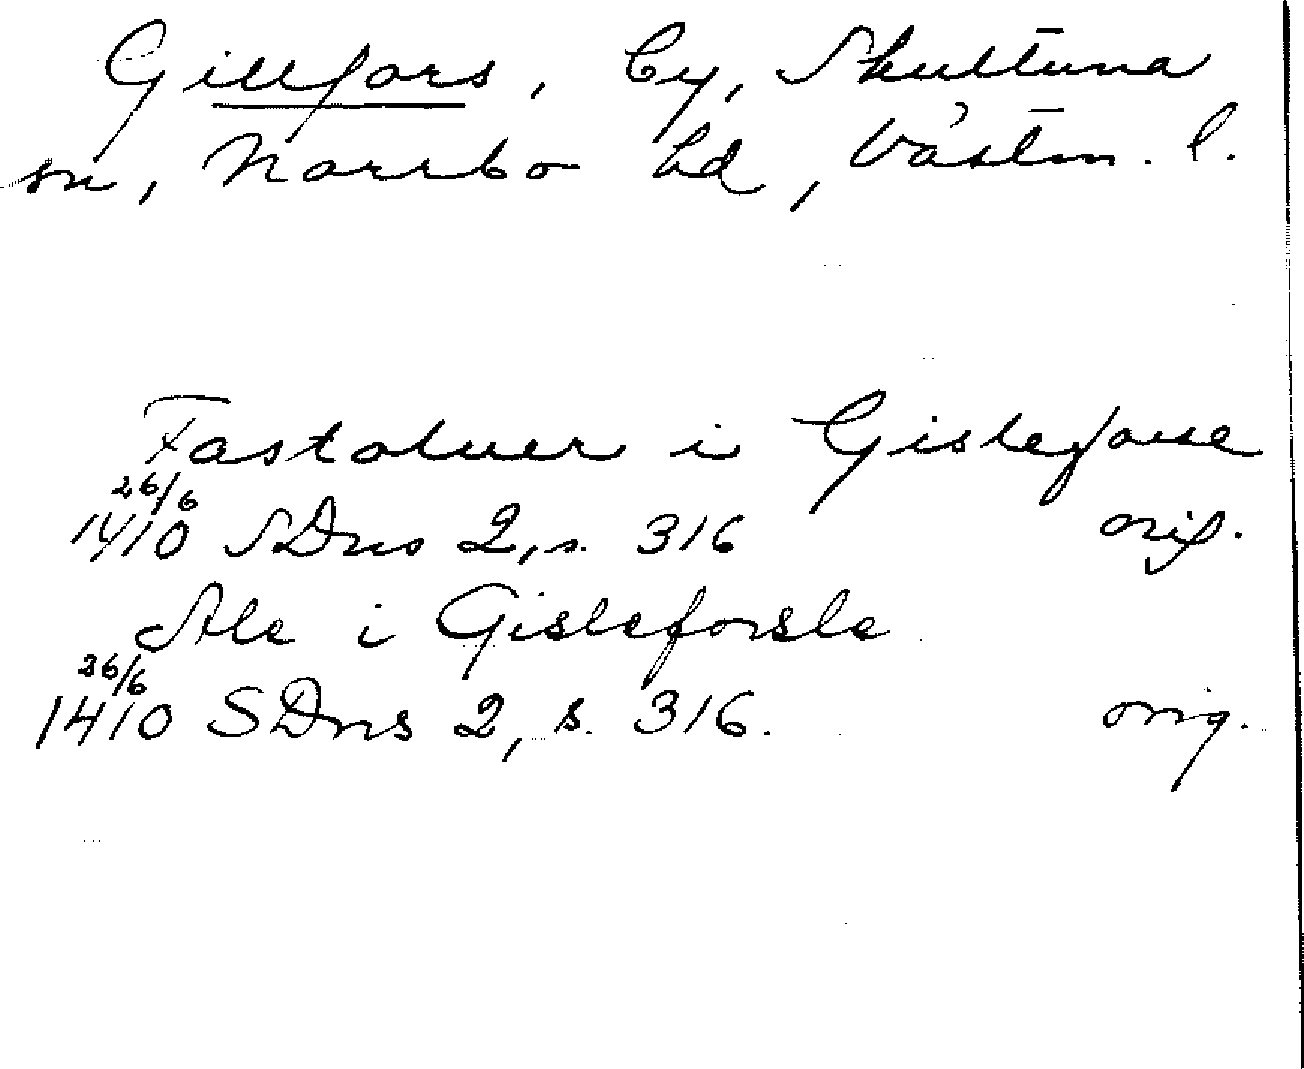 Gillfors, by, Skultuna
sn, Norrbo hd, Västm. l.
Fastoluer i Gisle
26/6
1410 SDns 2, s. 316 orig.
Ale i Gisleforsle
26/6
1410 SDns 2, s. 316. orig.